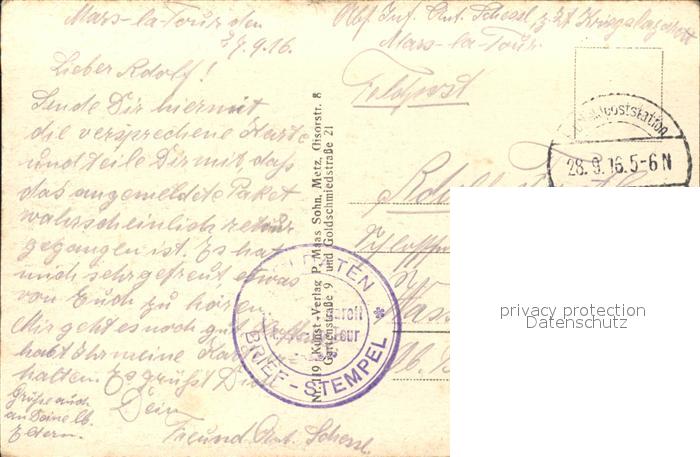 Mars-la-Tour den
27.9.16.
Lieber Rdolf!
Sende Dir hiermit
die versprochene Karte
und teile Dir mit dass
das angemeldete Paket
wahrscheinlich retour
gegangen ist. Es hat
mich sehr gefreut, etwas
von Euch zu hören.
Mir geht es noch gut
habt Ihr meine Karte
halten. Es grüßt Dich
Dein
Freund Ant. Schessl.
Grüße auch
an Deine lb.
Eltern.
Nr. 119 Kunst-Verlag P. Maas Sohn, Metz, Gisorstr. 8
Gartenstraße 9 und Goldschmiedstraße 21
Abs. Inf. Ant. Schessl z. Zt. Kriegslazarett
Mars-la-Tour
Feldpost
poststation
28.9.16.5-6N
BRIEF-STEMPEL
Tour
privacy protection
Datenschutz